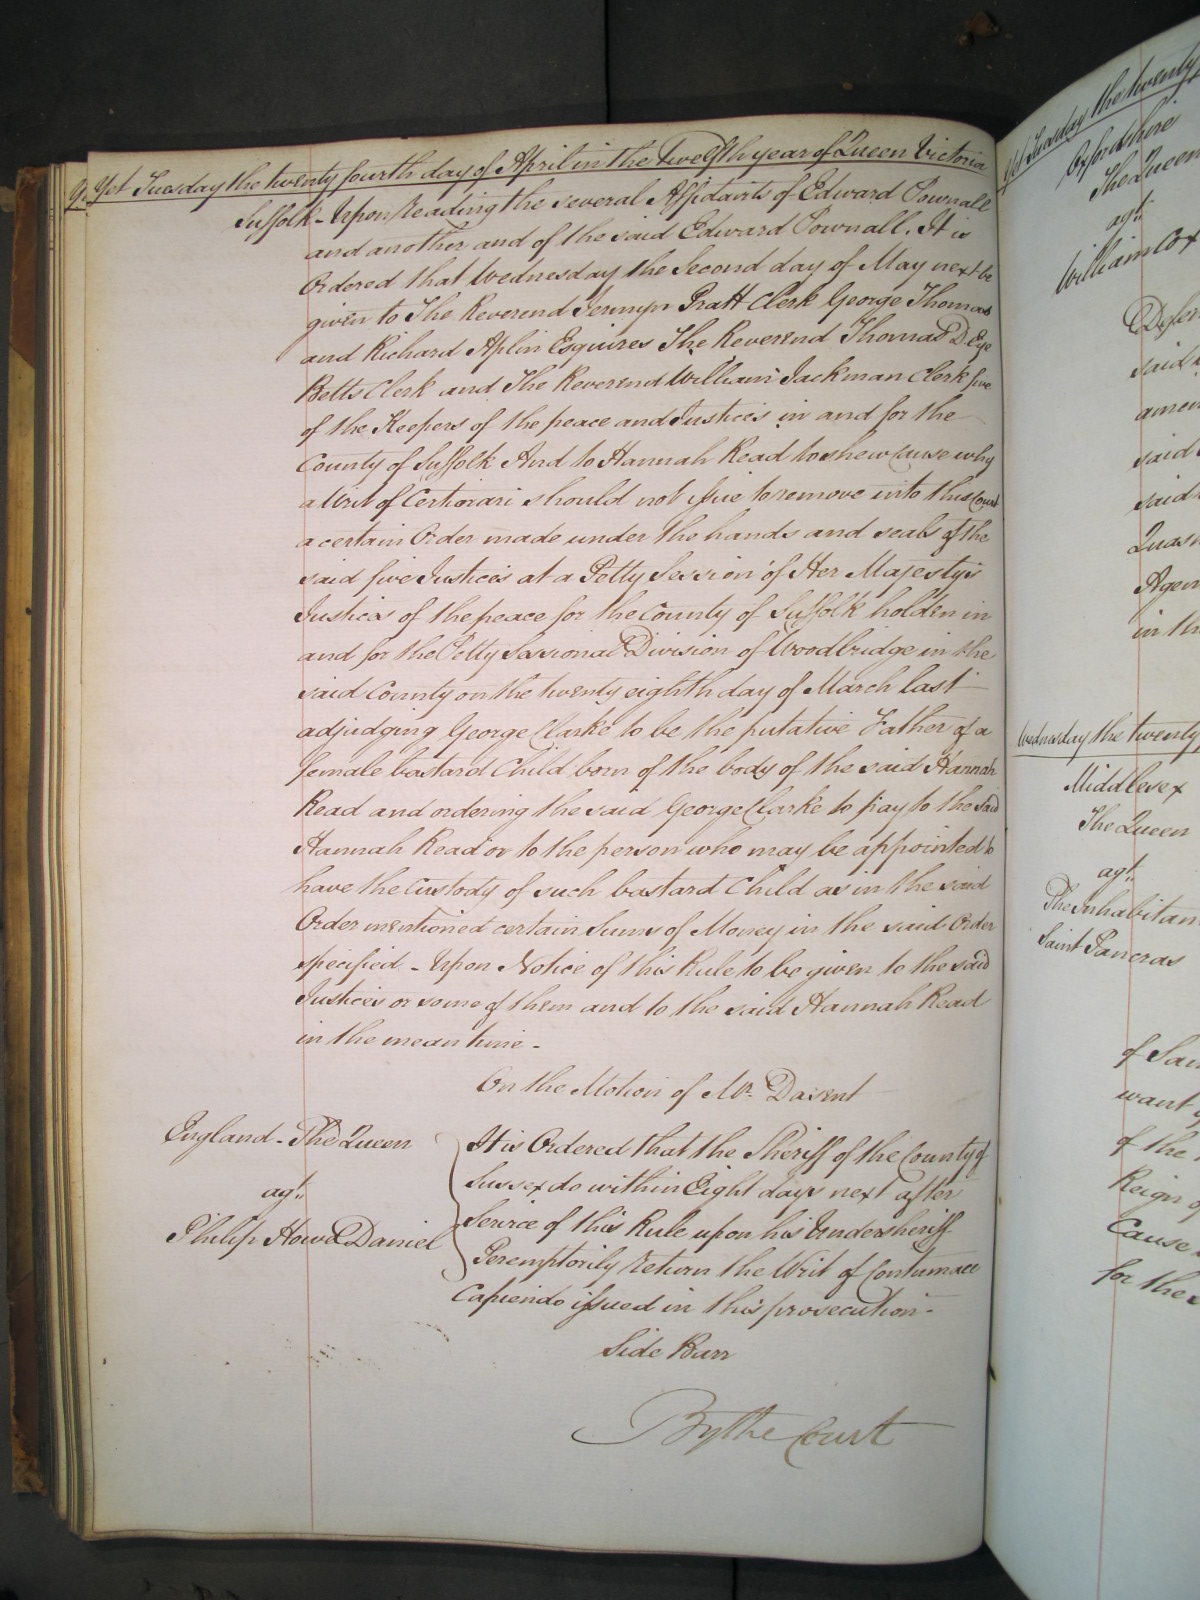 Yet Tuesday the twenty fourth day of April in the Twelfth year of Queen Victoria
Suffolk - Upon reading the several Affidavits of Edward Pownall
and another and of the said Edward Pownall. It is
Ordered that Wednesday the Second day of May next be
given to The Reverend Jermyn Pratt Clerk George Thomas
and Richard Aplin Esquires The Reverend Thomas D. Eye
Betts Clerk and The Reverend William Jackman Clerk five
of the Keepers of the peace and Justices in and for the
County of Suffolk And to Hannah Read to shew Cause why
a Writ of Certiorari should not issue to remove into this Court
a certain Order made under the hands and seals of the
said five Justices at a Petty Session of Her Majesty's
Justices of the peace for the County of Suffolk holden in
and for the Petty Sessional Division of Woodbridge in the
said County on the twenty eighth day of March last
adjudging George Clarke to be the putative Father of a
female bastard Child born of the body of the said Hannah
Read and ordering the said George Clarke to pay to the said
Hannah Read or to the person who may be appointed to
have the Custody of such bastard Child as in the said
Order mentioned certain Sums of Money in the said Order
specified - Upon Notice of this Rule to be given to the said
Justices or some of them and to the said Hannah Read
in the mean time -
On the Motion of Mr. Dasent
England - The Queen
agt.
Philip Howd Daniel
It is Ordered that the Sheriff of the County of
Sussex do within Eight days next after
Service of this Rule upon his Undersheriff
Peremptorily return the Writ of Contumace
Capiendo issued in this prosecution -
Side Barr
By the Court
Yet Tuesday the twenty
Oxfordshire
The Queen
agt.
William Cox
said
said
said
in the
Wednesday the twenty
Middlesex
The Queen
agt.
The Inhabitan
Saint Pancras
of Sain
want
of the
Reign of
Cause
for the